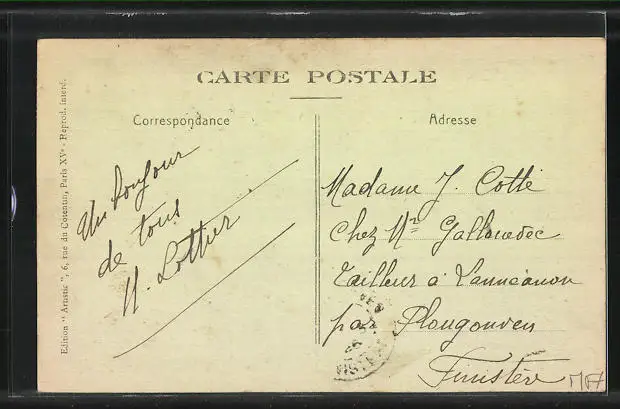 CARTE POSTALE
Correspondance
Un bonjour
de tous
H. Lottier
Adresse
Madame J. Cotté
Chez Mr Gallouedec
Tailleur à Lannéanou
par Plougonven
Finistère
Edition "Artistic", 6, rue du Cotentin, Paris XVe - Reprod. interd.